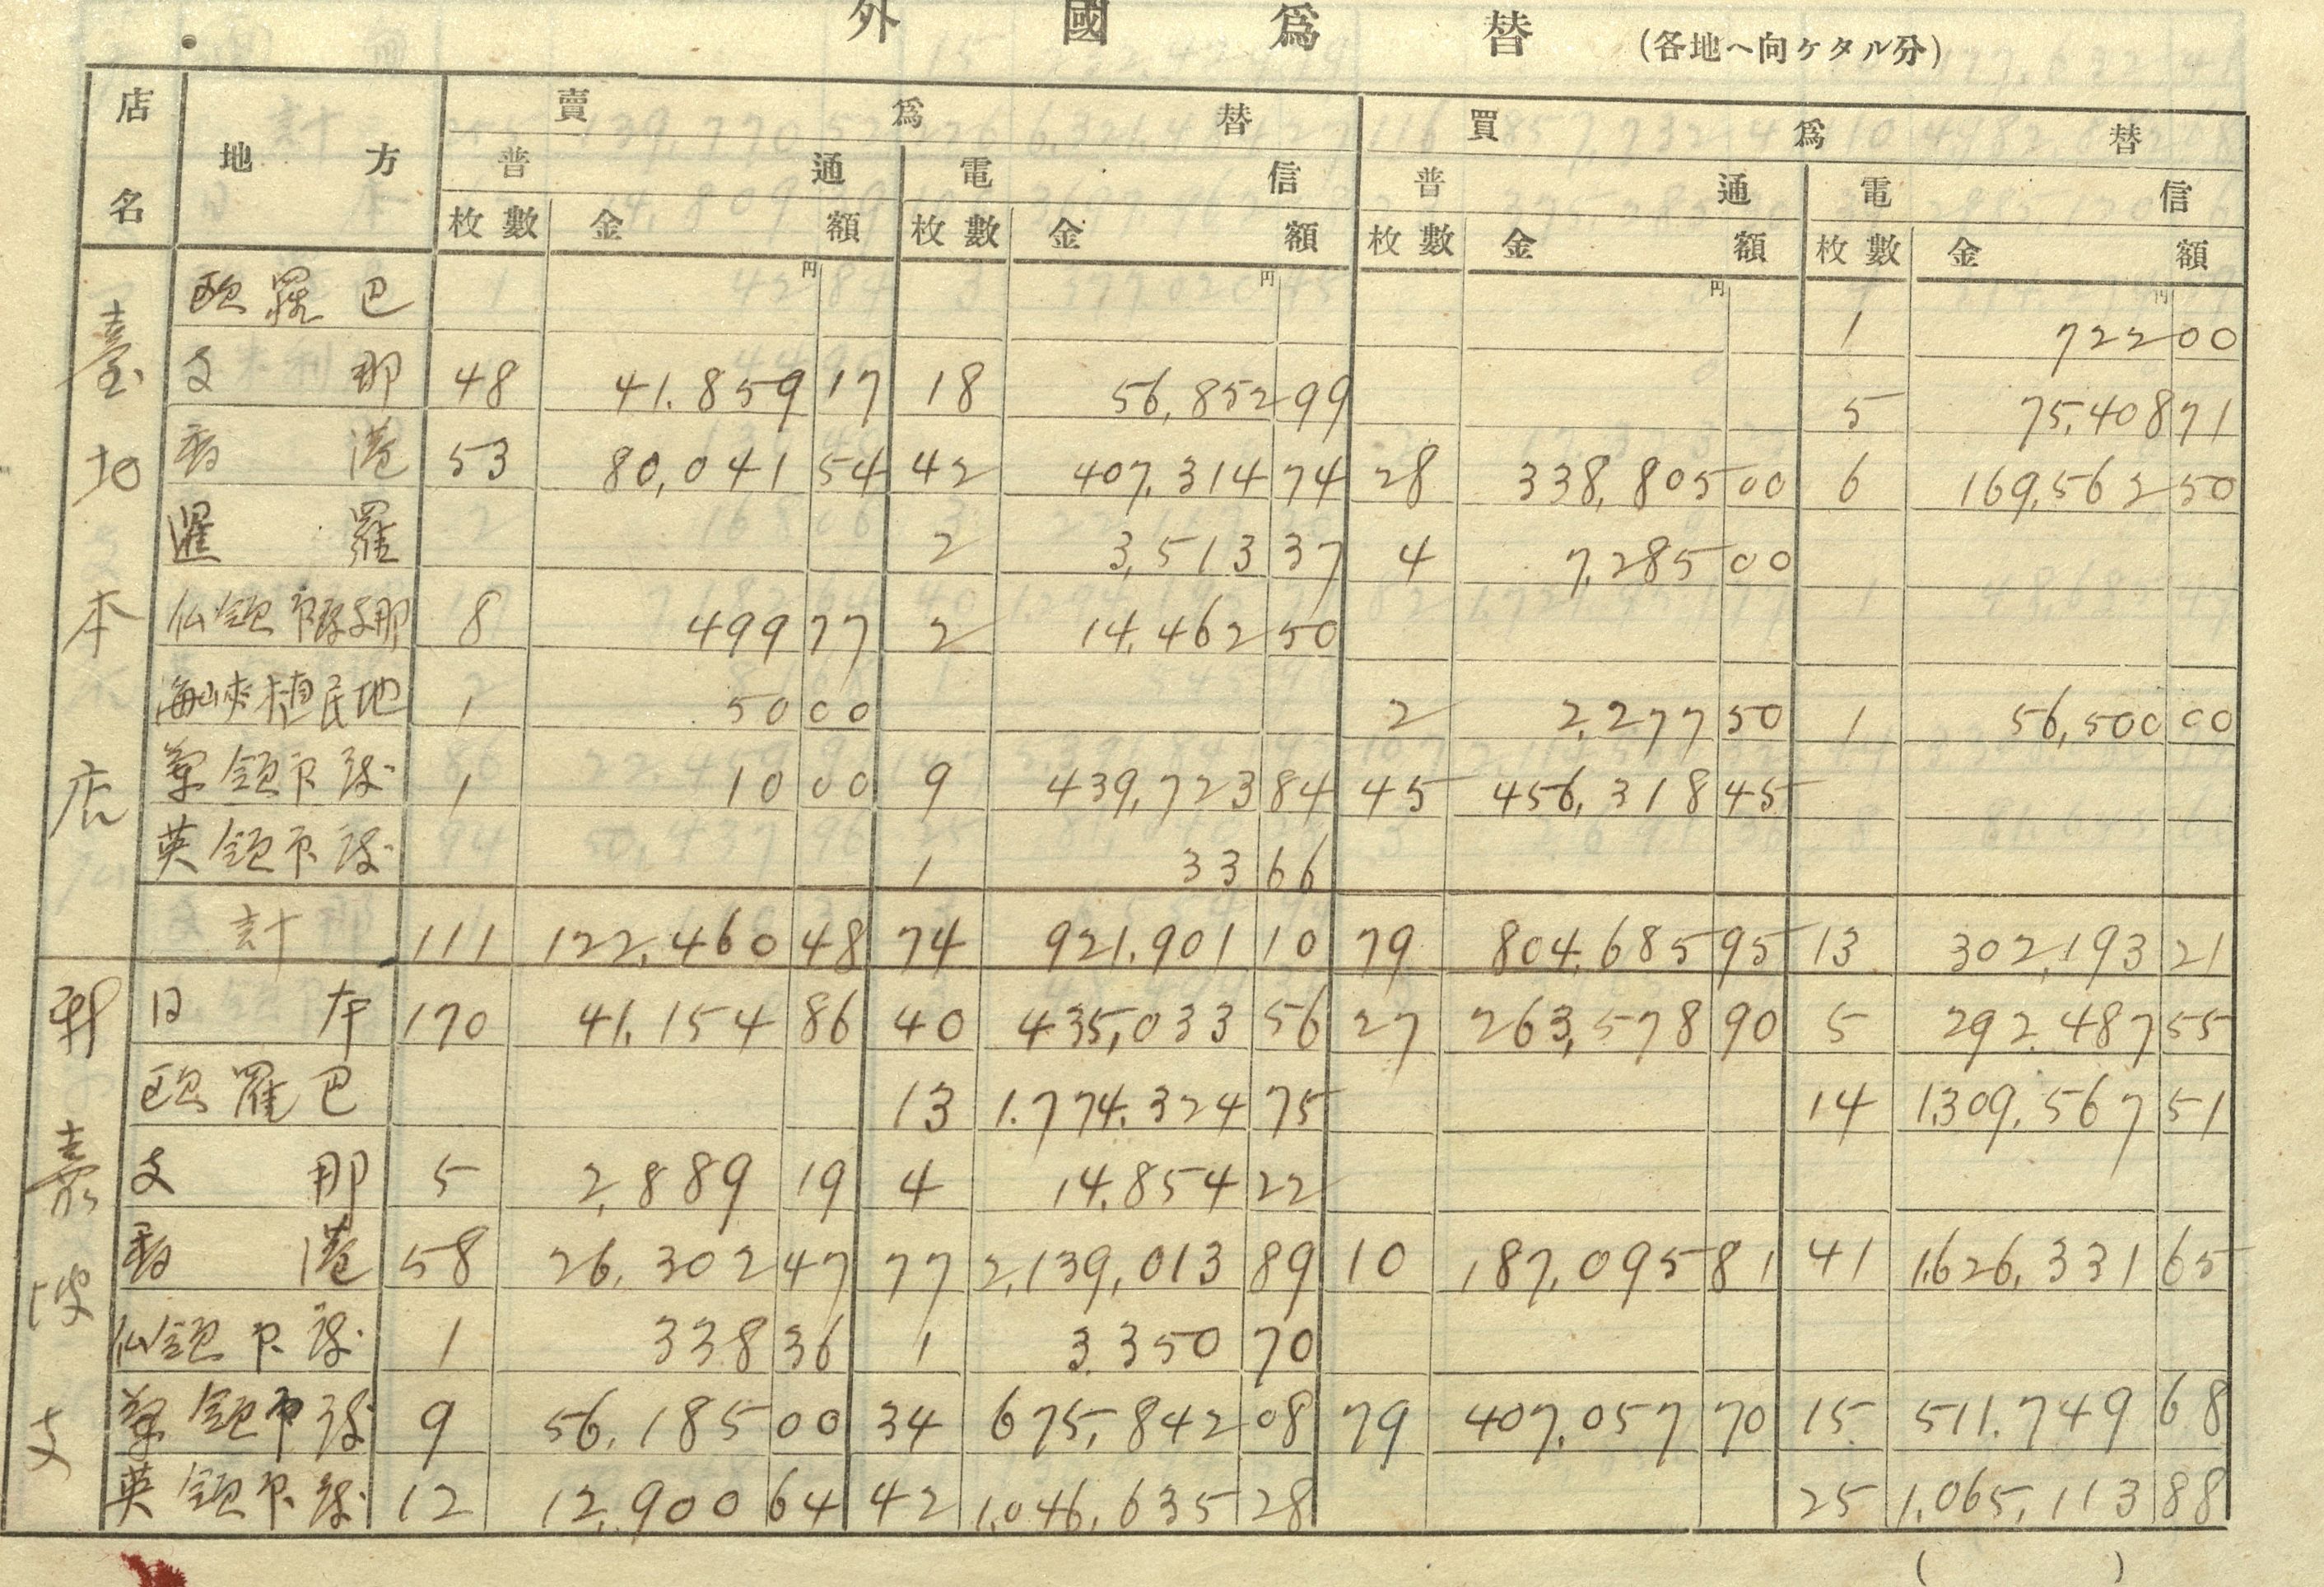 外國爲替 (各地ヘ向ケタル分)
店名 地方 賣爲替 買爲替
普通 電信 普通 電信
枚數 金額 枚數 金額 枚數 金額 枚數 金額
円 円 円 円
臺北本店
歐羅巴 1 722 00
支那 48 41.859 17 18 56,852 99 5 75,408 71
香港 53 80,041 54 42 407,314 74 28 338,805 00 6 169,562 50
暹羅 2 3,513 37 4 7,285 00
仏領印度支那 8 499 77 2 14,462 50
海峽植民地 1 50 00 2 2,277 50 1 56,500 00
蘭領印度 1 10 00 9 439,723 84 45 456,318 45
英領印度 1 33 66
計 111 122,460 48 74 921,901 10 79 804,685 95 13 302,193 21
新嘉坡支
日本 170 41,154 86 40 435,033 56 27 263,578 90 5 292,487 55
歐羅巴 13 1.774.324 75 14 1,309,567 51
支那 5 2,889 19 4 14,854 22
香港 58 26,302 47 77 2,139,013 89 10 187,095 81 41 1,626,331 65
仏領印度 1 338 36 1 3,350 70
蘭領印度 9 56,185 00 34 675,842 08 79 407,057 70 15 511,749 68
英領印度 12 12,900 64 42 1,046,635 28 25 1,065,113 88
( )